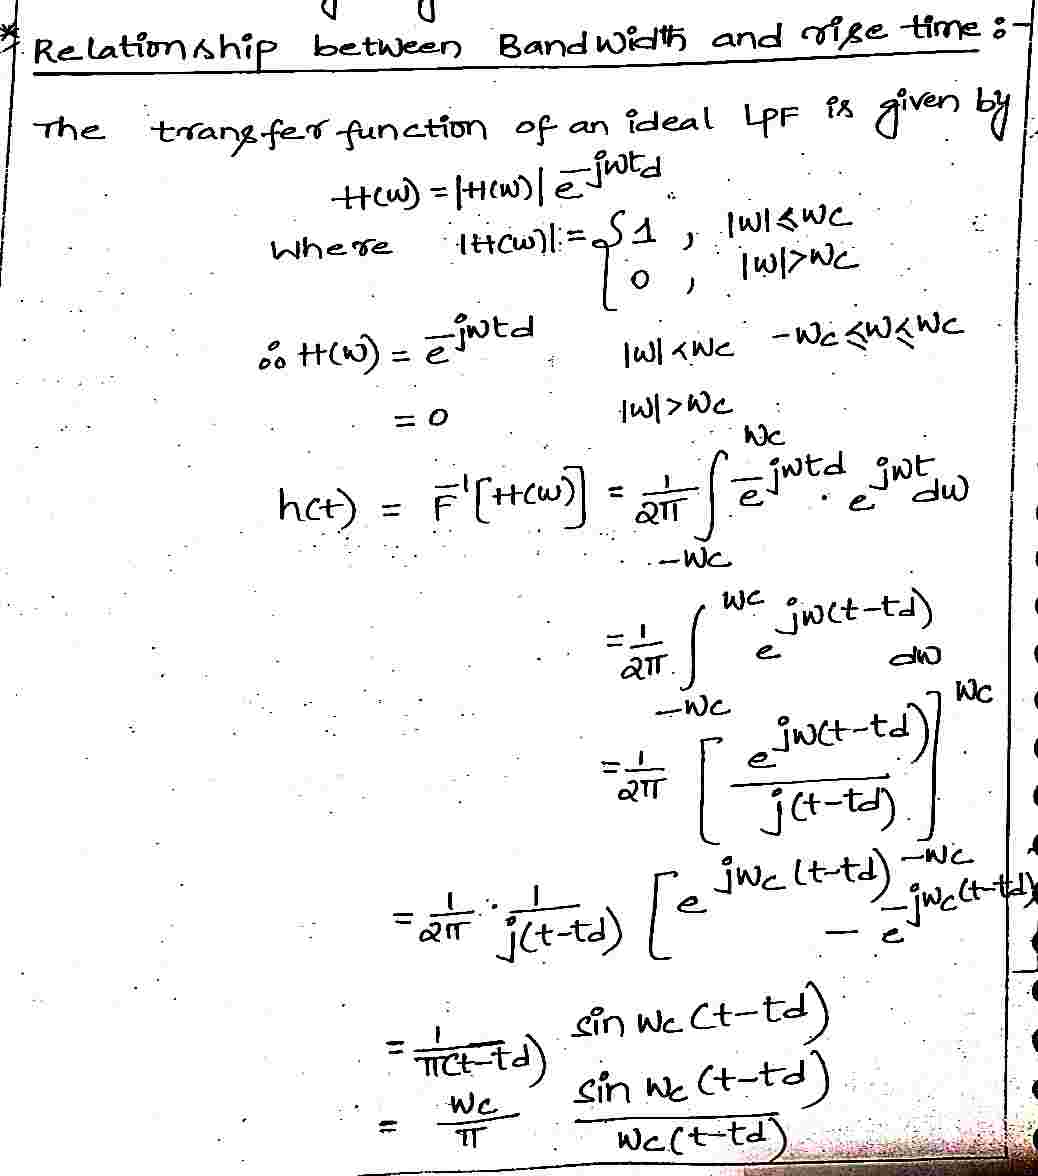 * Relationship between Bandwidth and rise time :-
The transfer function of an ideal LPF is given by
H(w) = |H(w)| e^-jwtd
Where |H(w)| = { 1 , |w| ≤ wc
0 , |w| > wc
∴ H(w) = e^-jwtd |w| < wc -wc ≤ w ≤ wc
= 0 |w| > wc
h(t) = F^-1 [H(w)] = 1/2π ∫_-wc^wc e^-jwtd . e^jwt dw
= 1/2π ∫_-wc^wc e^jw(t-td) dw
= 1/2π [ e^jw(t-td) / j(t-td) ]_-wc^wc
= 1/2π . 1/j(t-td) [ e^jwc(t-td) - e^-jwc(t-td)
= 1/π(t-td) sin wc (t-td)
= wc/π sin wc (t-td) / wc(t-td)